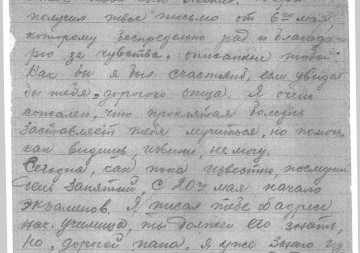 получил твое письмо от 6го мая
которому беспредельно рад и благода-
рю за чувства, описанные тобой.
Как бы я был счастлив, если увидел
бы тебя, дорогого отца. Я очень
сожалею, что проклятая болезнь
заставляет тебя мучиться, но помочь,
как видишь, извини, не могу.
Сегодня, как пока известно, последний
день занятий, с 20го мая начало
экзаменов. Я писал тебе
нач. училища, ты должен его знать,
но, дорогой папа, я уже знаю